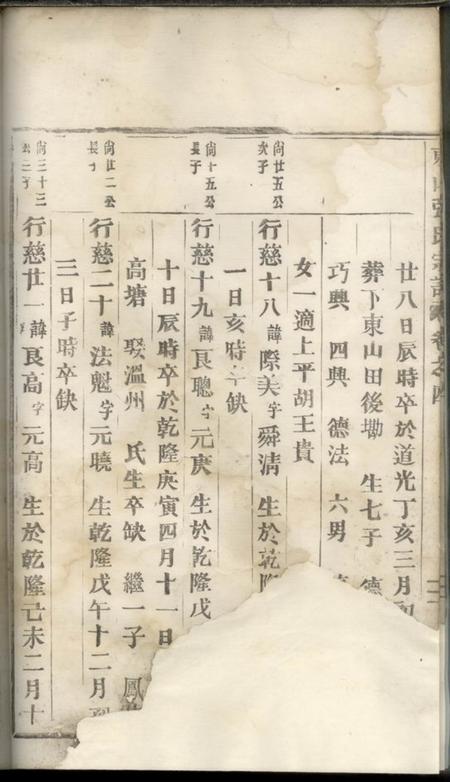 廿八日辰時卒於道光丁亥三月
葬下東山田後墈 生七子 德
巧興 四興 德法 六男
女一適上平胡王貴
尚廿五公次子
行慈十八諱際美字舜清 生於乾隆
一日亥時卒缺
尚十五公長子
行慈十九諱良聰字元庚 生於乾隆戊
十日辰時卒於乾隆庚寅四月十一日
高塘 娶溫州 氏生卒缺 繼一子 鳳
尚廿二公長子
行慈二十諱法魁字元曉 生乾隆戊午十二月
三日子時卒缺
尚三十三
行慈廿一諱良高字元高 生於乾隆己未二月十